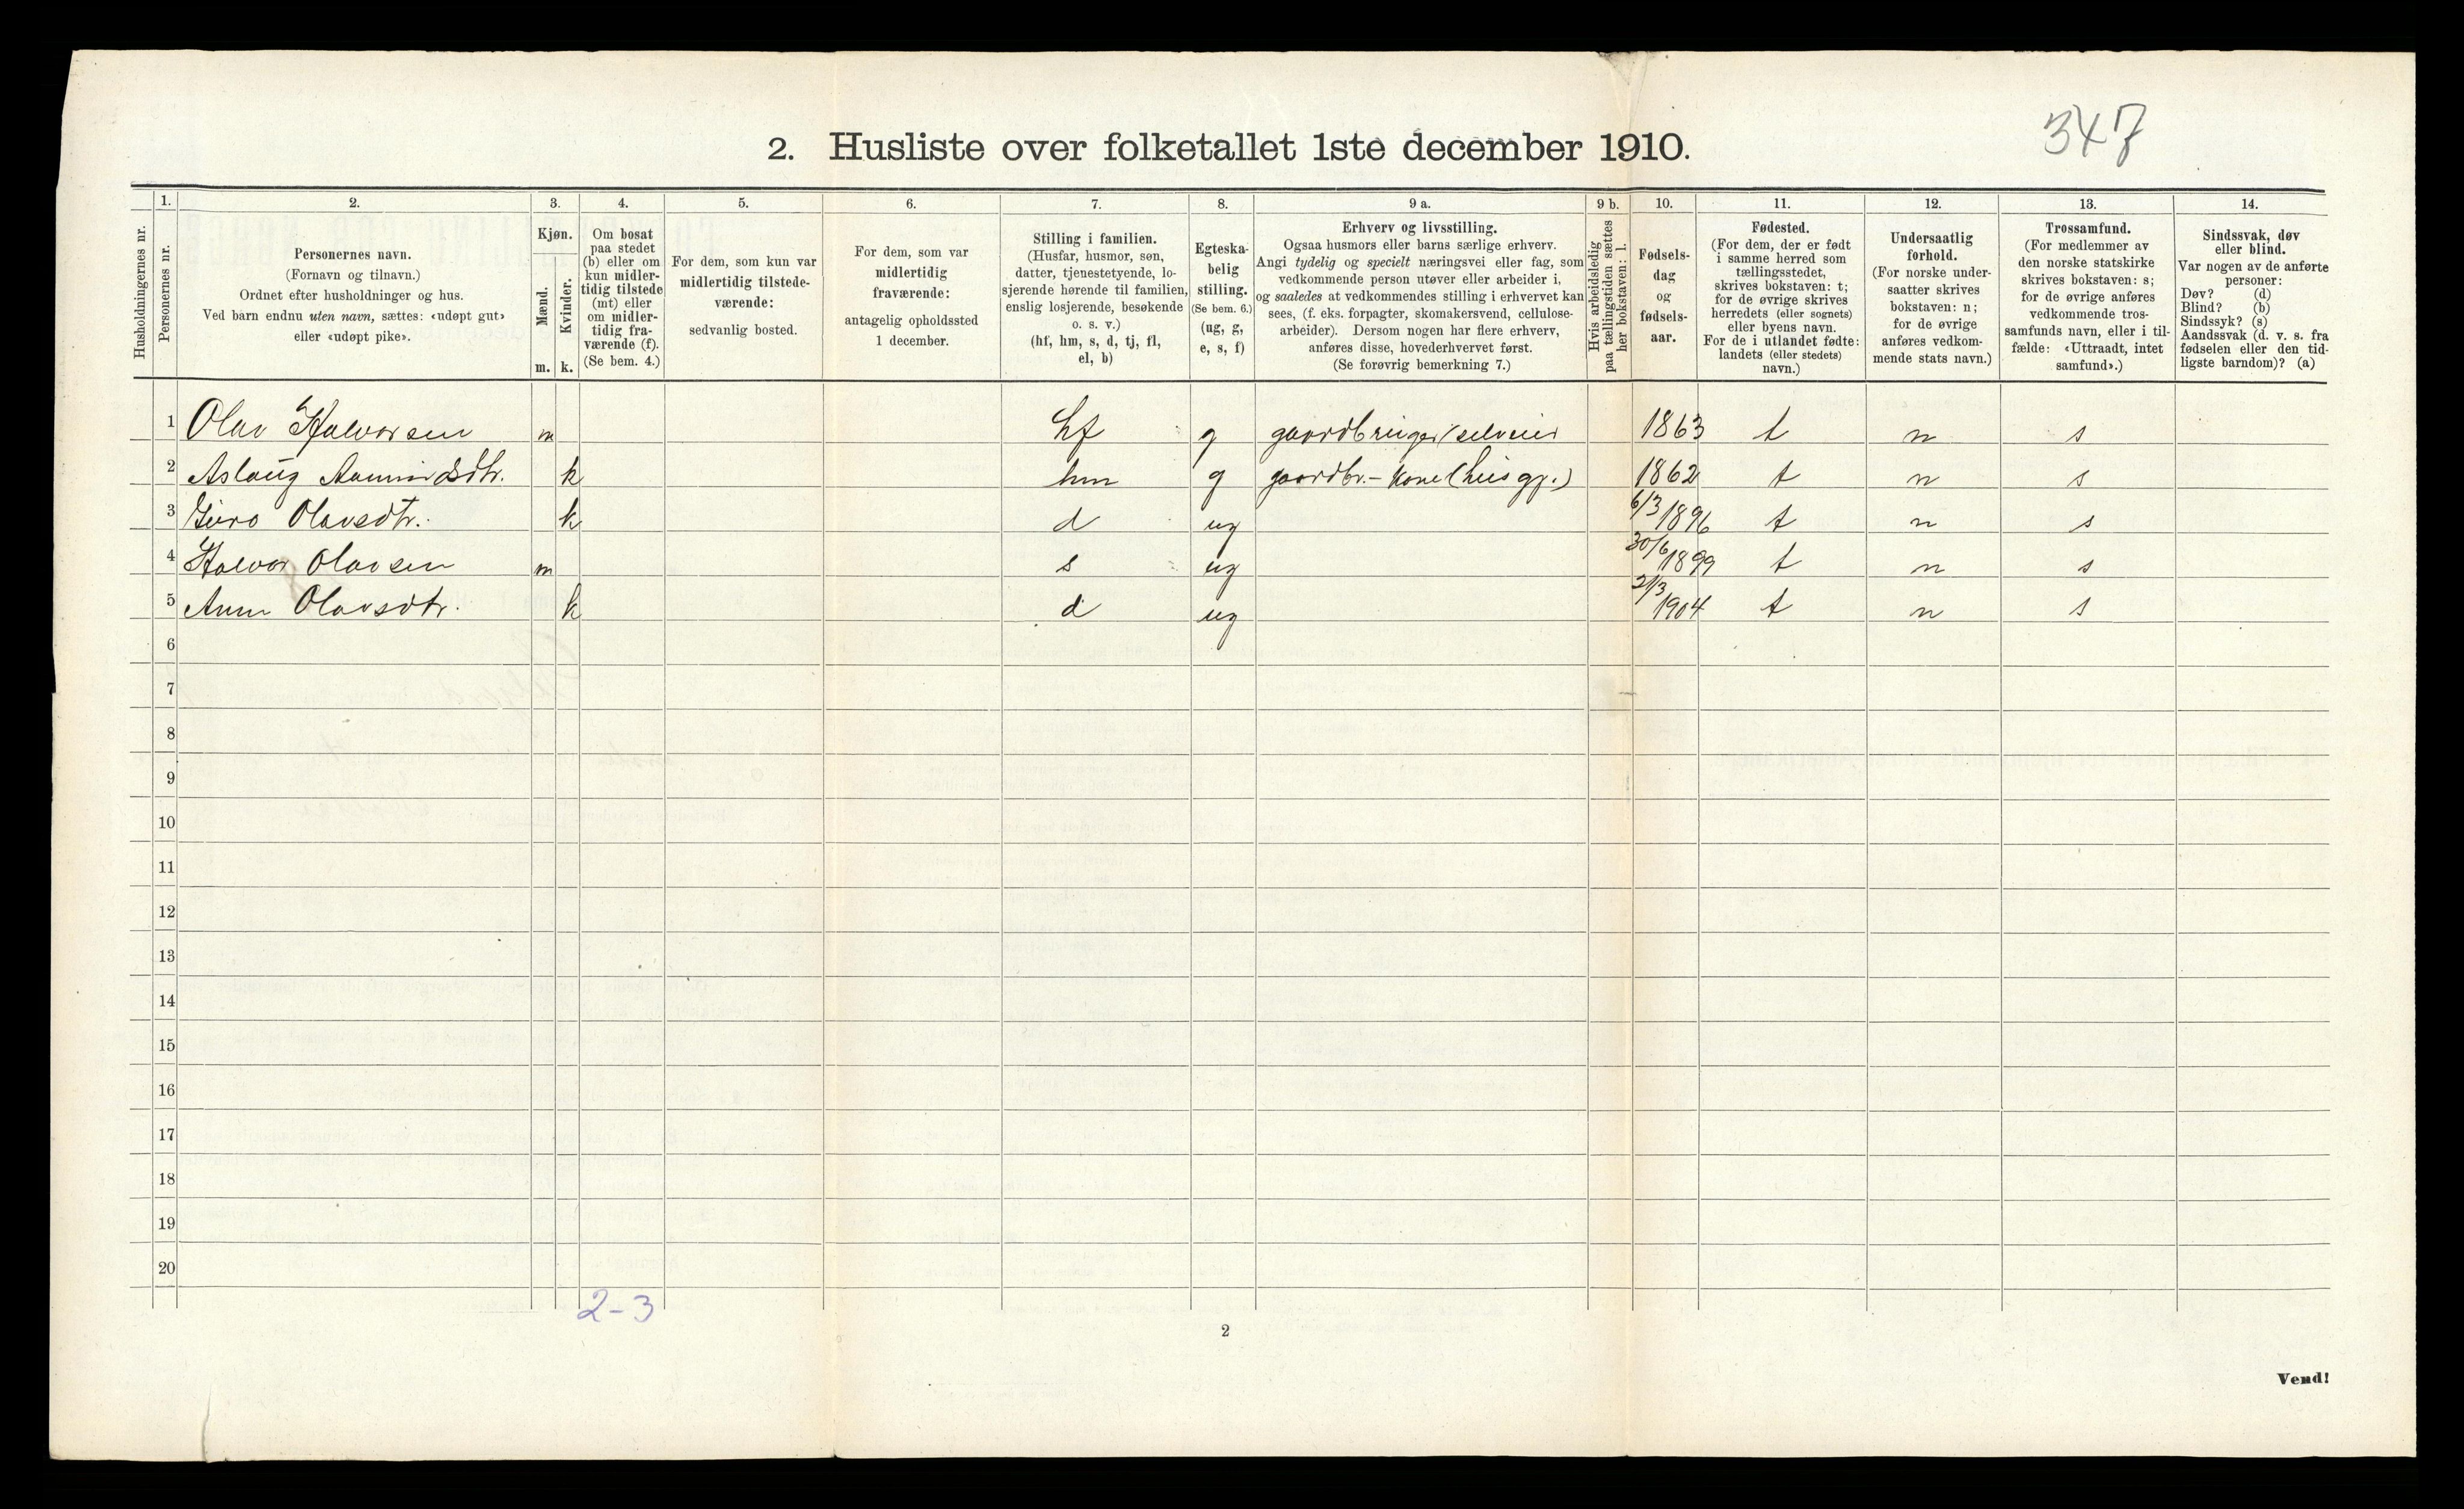 347
2. Husliste over folketallet 1ste december 1910.
Husholdningernes nr.
1.
Personernes nr.
2.
Personernes navn.
(Fornavn og tilnavn.)
Ordnet efter husholdninger og hus.
Ved barn endnu uten navn, sættes: «udøpt gut»
eller «udøpt pike».
3.
Kjøn.
Mænd.
m.
Kvinder.
k.
4.
Om bosat
paa stedet
(b) eller om
kun midler-
tidig tilstede
(mt) eller
om midler-
tidig fra-
værende (f).
(Se bem. 4.)
5.
For dem, som kun var
midlertidig tilstede-
værende:
sedvanlig bosted.
6.
For dem, som var
midlertidig
fraværende:
antagelig opholdssted
1 december.
7.
Stilling i familien.
(Husfar, husmor, søn,
datter, tjenestetyende, lo-
sjerende hørende til familien,
enslig losjerende, besøkende
o. s. v.)
(hf, hm, s, d, tj, fl,
el, b)
8.
Egteska-
belig
stilling.
(Se bem. 6.)
(ug, g,
e, s, f)
9 a.
Erhverv og livsstilling.
Ogsaa husmors eller barns særlige erhverv.
Angi tydelig og specielt næringsvei eller fag, som
vedkommende person utøver eller arbeider i,
og saaledes at vedkommendes stilling i erhvervet kan
sees, (f. eks. forpagter, skomakersvend, cellulose-
arbeider). Dersom nogen har flere erhverv,
anføres disse, hovederhvervet først.
(Se forøvrig bemerkning 7.)
9 b.
Hvis arbeidsledig
paa tællingstiden sættes
her bokstaven: l.
10.
Fødsels-
dag
og
fødsels-
aar.
11.
Fødested.
(For dem, der er født
i samme herred som
tællingsstedet,
skrives bokstaven: t;
for de øvrige skrives
herredets (eller sognets)
eller byens navn.
For de i utlandet fødte:
landets (eller stedets)
navn.)
12.
Undersaatlig
forhold.
(For norske under-
saatter skrives
bokstaven: n;
for de øvrige
anføres vedkom-
mende stats navn.)
13.
Trossamfund.
(For medlemmer av
den norske statskirke
skrives bokstaven: s;
for de øvrige anføres
vedkommende tros-
samfunds navn, eller i til-
fælde: «Uttraadt, intet
samfund».)
14.
Sindssvak, døv
eller blind.
Var nogen av de anførte
personer:
Døv? (d)
Blind? (b)
Sindssyk? (s)
Aandssvak (d. v. s. fra
fødselen eller den tid-
ligste barndom)? (a)
1 Olav Halvorsen m hf g gaardbruger/selveier 1863 t n s
2 Aslaug Aamundsdtr. k hm g gaardbr.-kone (husgj.) 1862 t n s
3 Guro Olavsdtr. k d ug 6/3 1896 t n s
4 Halvor Olavsen m s ug 30/6 1899 t n s
5 Anne Olavsdtr. k d ug 21/3 1904 t n s
6
7
8
9
10
11
12
13
14
15
16
17
18
19
20
2-3
2
Vend!